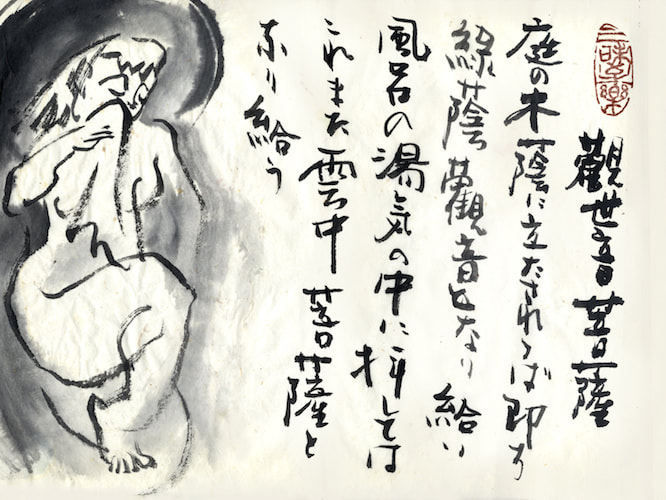 三味章樂
觀世音菩薩
庭の木蔭に立たされば即ち
緑蔭觀音となり給い
風呂の湯気の中に拝しては
これまた雲中菩薩と
なり給う